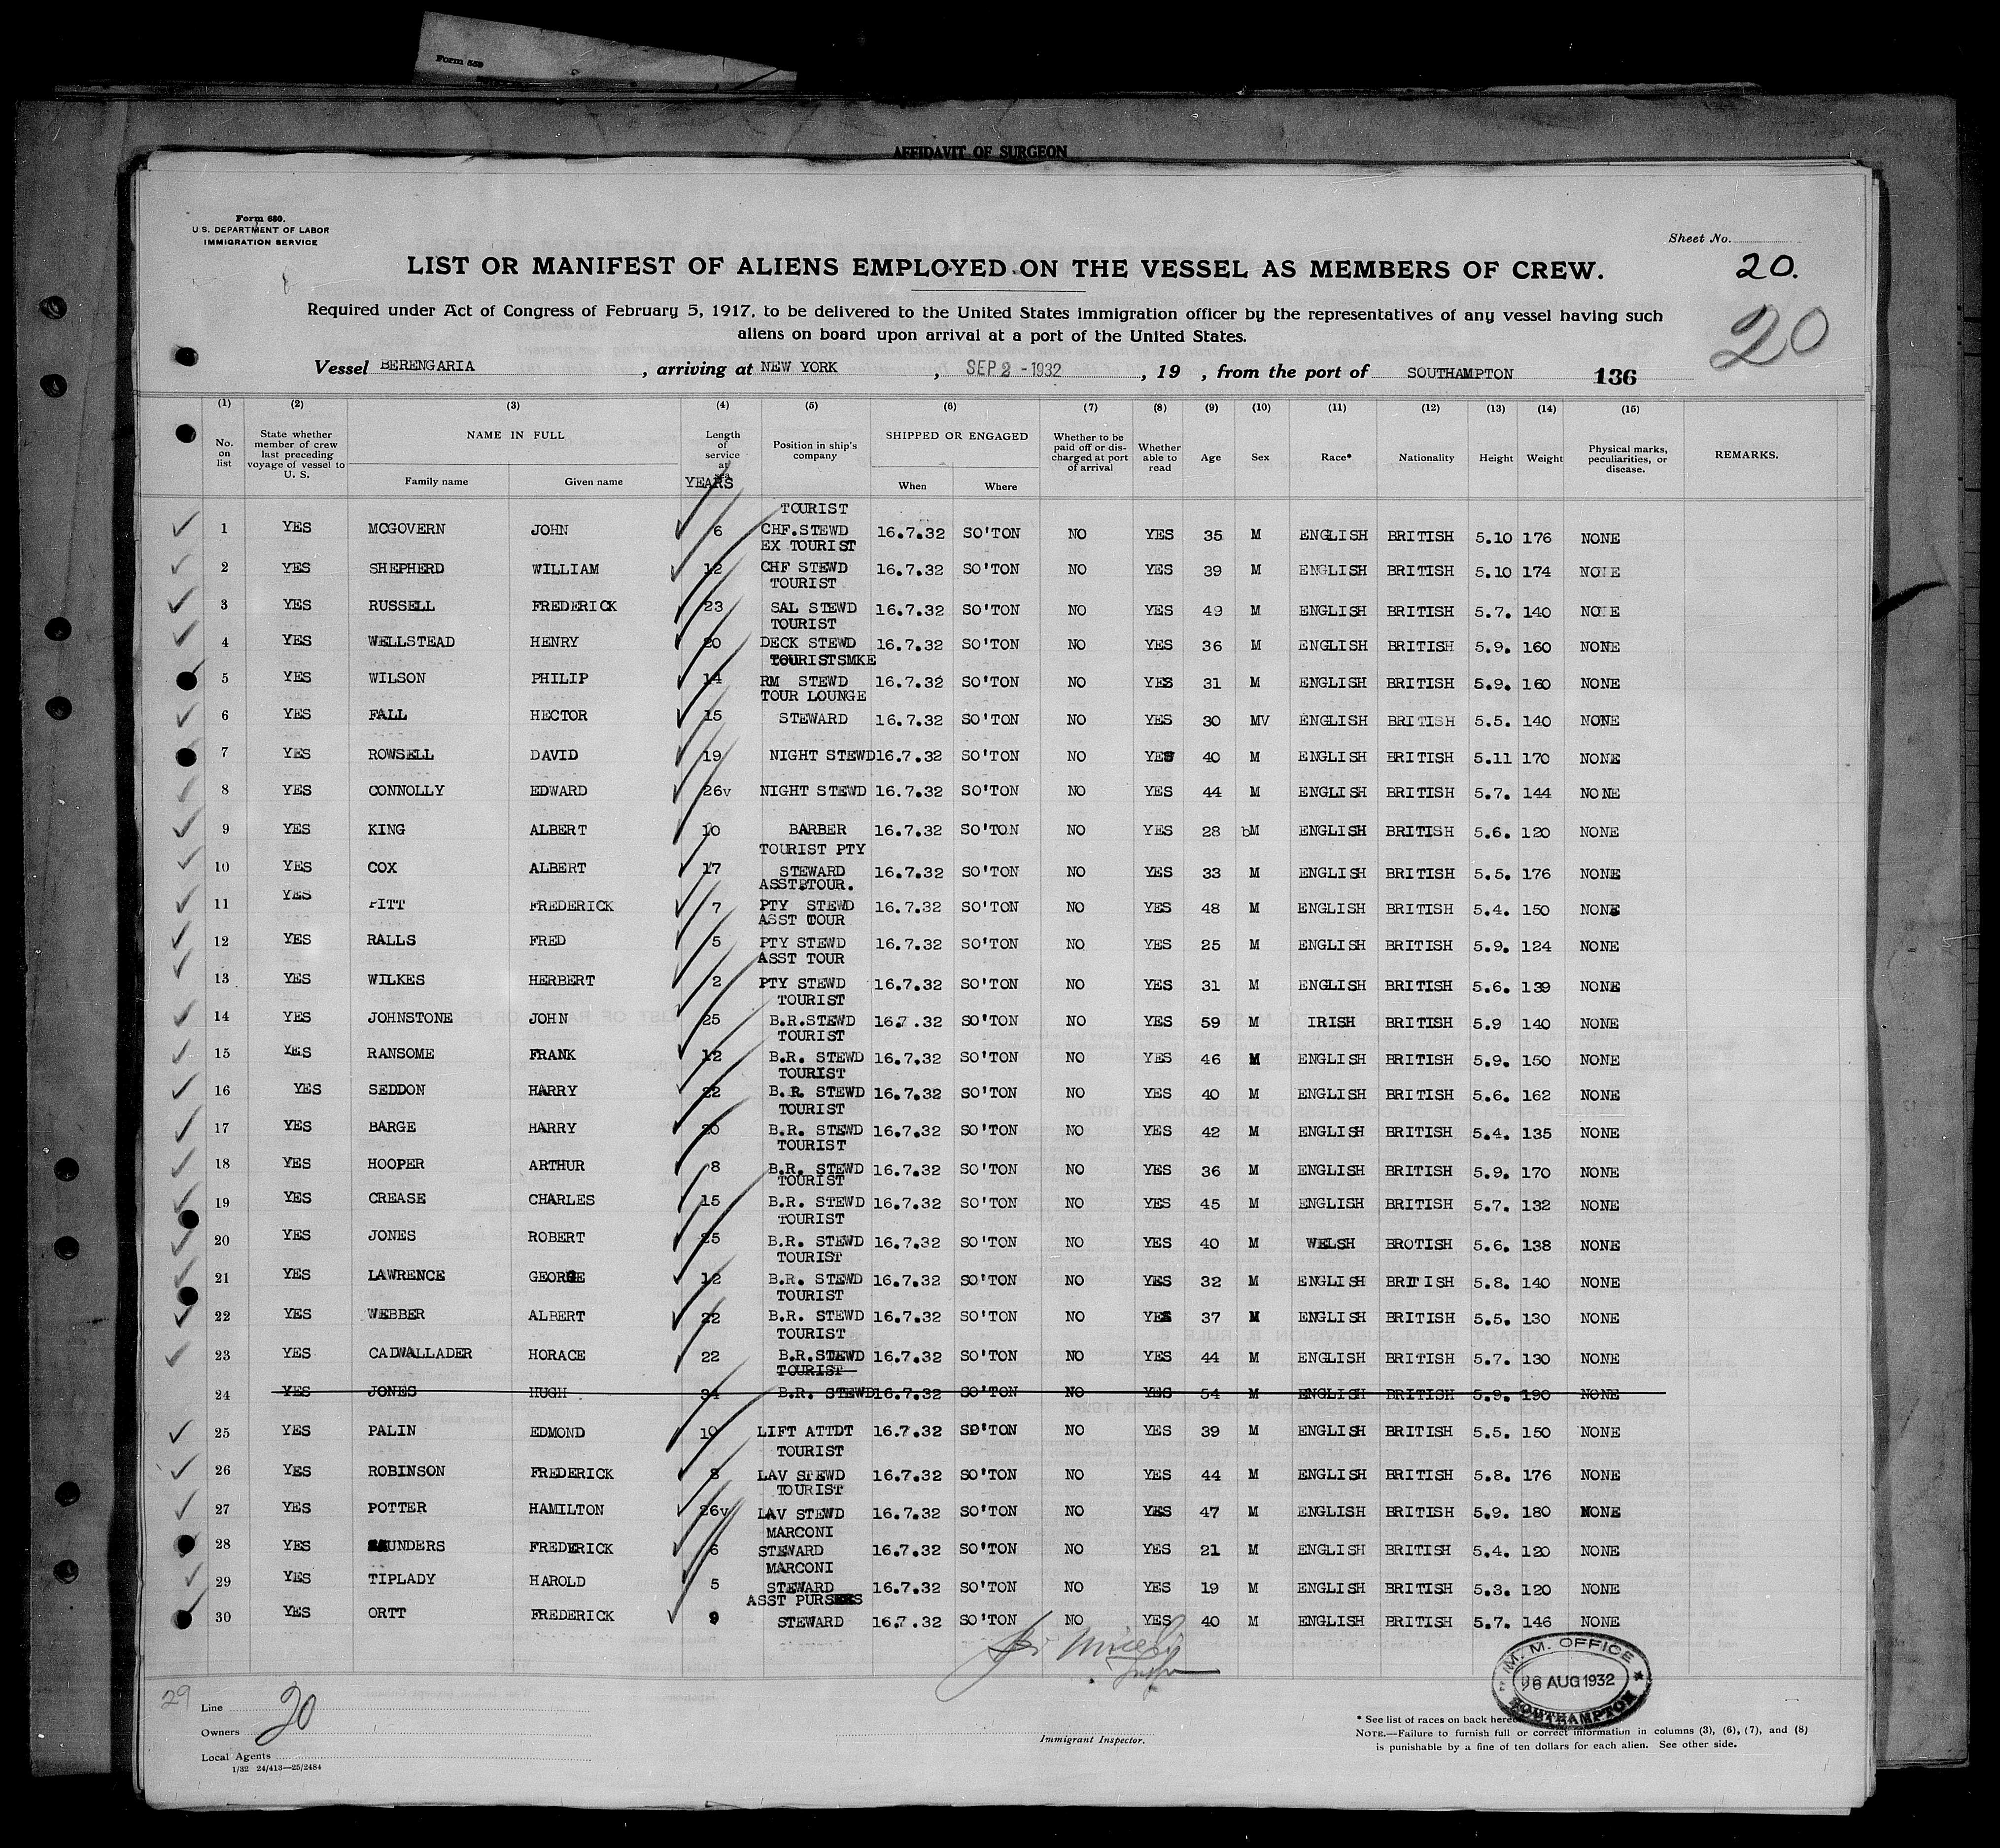 Form 559
AFFIDAVIT OF SURGEON
Form 680.
U.S. DEPARTMENT OF LABOR
IMMIGRATION SERVICE
Sheet No.
LIST OR MANIFEST OF ALIENS EMPLOYED ON THE VESSEL AS MEMBERS OF CREW.
20.
20
Required under Act of Congress of February 5, 1917, to be delivered to the United States immigration officer by the representatives of any vessel having such
aliens on board upon arrival at a port of the United States.
Vessel BERENGARIA, arriving at NEW YORK, SEP 2 - 1932, 19 , from the port of SOUTHAMPTON 136
(1) (2) (3) (4) (5) (6) (7) (8) (9) (10) (11) (12) (13) (14) (15)
No. on list State whether member of crew last preceding voyage of vessel to U. S. NAME IN FULL Family name Given name Length of service at sea YEARS Position in ship's company SHIPPED OR ENGAGED When Where Whether to be paid off or discharged at port of arrival Whether able to read Age Sex Race* Nationality Height Weight Physical marks, peculiarities, or disease. REMARKS.
1 YES MCGOVERN JOHN 6 TOURIST CHF.STEWD 16.7.32 SO'TON NO YES 35 M ENGLISH BRITISH 5.10 176 NONE
2 YES SHEPHERD WILLIAM 12 EX TOURIST CHF STEWD 16.7.32 SO'TON NO YES 39 M ENGLISH BRITISH 5.10 174 NONE
3 YES RUSSELL FREDERICK 23 TOURIST SAL STEWD 16.7.32 SO'TON NO YES 49 M ENGLISH BRITISH 5.7. 140 NONE
4 YES WELLSTEAD HENRY 20 TOURIST DECK STEWD 16.7.32 SO'TON NO YES 36 M ENGLISH BRITISH 5.9. 160 NONE
5 YES WILSON PHILIP 14 TOURISTSMKE RM STEWD 16.7.32 SO'TON NO YES 31 M ENGLISH BRITISH 5.9. 160 NONE
6 YES FALL HECTOR 15 TOUR LOUNGE STEWARD 16.7.32 SO'TON NO YES 30 MV ENGLISH BRITISH 5.5. 140 NONE
7 YES ROWSELL DAVID 19 NIGHT STEWD 16.7.32 SO'TON NO YES 40 M ENGLISH BRITISH 5.11 170 NONE
8 YES CONNOLLY EDWARD 26v NIGHT STEWD 16.7.32 SO'TON NO YES 44 M ENGLISH BRITISH 5.7. 144 NONE
9 YES KING ALBERT 10 BARBER 16.7.32 SO'TON NO YES 28 bM ENGLISH BRITISH 5.6. 120 NONE
10 YES COX ALBERT 17 TOURIST PTY STEWARD 16.7.32 SO'TON NO YES 33 M ENGLISH BRITISH 5.5. 176 NONE
11 YES PITT FREDERICK 7 ASST TOUR. PTY STEWD 16.7.32 SO'TON NO YES 48 M ENGLISH BRITISH 5.4. 150 NONE
12 YES RALLS FRED 5 ASST TOUR PTY STEWD 16.7.32 SO'TON NO YES 25 M ENGLISH BRITISH 5.9. 124 NONE
13 YES WILKES HERBERT 2 ASST TOUR PTY STEWD 16.7.32 SO'TON NO YES 31 M ENGLISH BRITISH 5.6. 139 NONE
14 YES JOHNSTONE JOHN 25 TOURIST B.R.STEWD 16.7.32 SO'TON NO YES 59 M IRISH BRITISH 5.9 140 NONE
15 YES RANSOME FRANK 12 TOURIST B.R. STEWD 16.7.32 SO'TON NO YES 46 M ENGLISH BRITISH 5.9. 150 NONE
16 YES SEDDON HARRY 22 TOURIST B.R. STEWD 16.7.32 SO'TON NO YES 40 M ENGLISH BRITISH 5.6. 162 NONE
17 YES BARGE HARRY 20 TOURIST B.R. STEWD 16.7.32 SO'TON NO YES 42 M ENGLISH BRITISH 5.4. 135 NONE
18 YES HOOPER ARTHUR 8 TOURIST B.R. STEWD 16.7.32 SO'TON NO YES 36 M ENGLISH BRITISH 5.9. 170 NONE
19 YES CREASE CHARLES 15 TOURIST B.R. STEWD 16.7.32 SO'TON NO YES 45 M ENGLISH BRITISH 5.7. 132 NONE
20 YES JONES ROBERT 25 TOURIST B.R. STEWD 16.7.32 SO'TON NO YES 40 M WELSH BROTISH 5.6. 138 NONE
21 YES LAWRENCE GEORGE 12 TOURIST B.R. STEWD 16.7.32 SO'TON NO YES 32 M ENGLISH BRITISH 5.8. 140 NONE
22 YES WEBBER ALBERT 22 TOURIST B.R. STEWD 16.7.32 SO'TON NO YES 37 M ENGLISH BRITISH 5.5. 130 NONE
23 YES CADWALLADER HORACE 22 TOURIST B.R.STEWD 16.7.32 SO'TON NO YES 44 M ENGLISH BRITISH 5.7. 130 NONE
24 YES JONES HUGH 34 TOURIST B.R. STEWD 16.7.32 SO'TON NO YES 54 M ENGLISH BRITISH 5.9. 190 NONE
25 YES PALIN EDMOND 10 LIFT ATTDT 16.7.32 SO'TON NO YES 39 M ENGLISH BRITISH 5.5. 150 NONE
26 YES ROBINSON FREDERICK 8 TOURIST LAV STEWD 16.7.32 SO'TON NO YES 44 M ENGLISH BRITISH 5.8. 176 NONE
27 YES POTTER HAMILTON 26v TOURIST LAV STEWD 16.7.32 SO'TON NO YES 47 M ENGLISH BRITISH 5.9. 180 NONE
28 YES SAUNDERS FREDERICK 6 MARCONI STEWARD 16.7.32 SO'TON NO YES 21 M ENGLISH BRITISH 5.4. 120 NONE
29 YES TIPLADY HAROLD 5 MARCONI STEWARD 16.7.32 SO'TON NO YES 19 M ENGLISH BRITISH 5.3. 120 NONE
30 YES ORTT FREDERICK 9 ASST PURSERS STEWARD 16.7.32 SO'TON NO YES 40 M ENGLISH BRITISH 5.7. 146 NONE
M. M. OFFICE
26 AUG 1932
SOUTHAMPTON
29
Line
20
Owners
Local Agents
1/32 24/413—25/2484
Immigrant Inspector.
* See list of races on back
NOTE.—Failure to furnish full or correct information in columns (3), (6), (7), and (8)
is punishable by a fine of ten dollars for each alien. See other side.